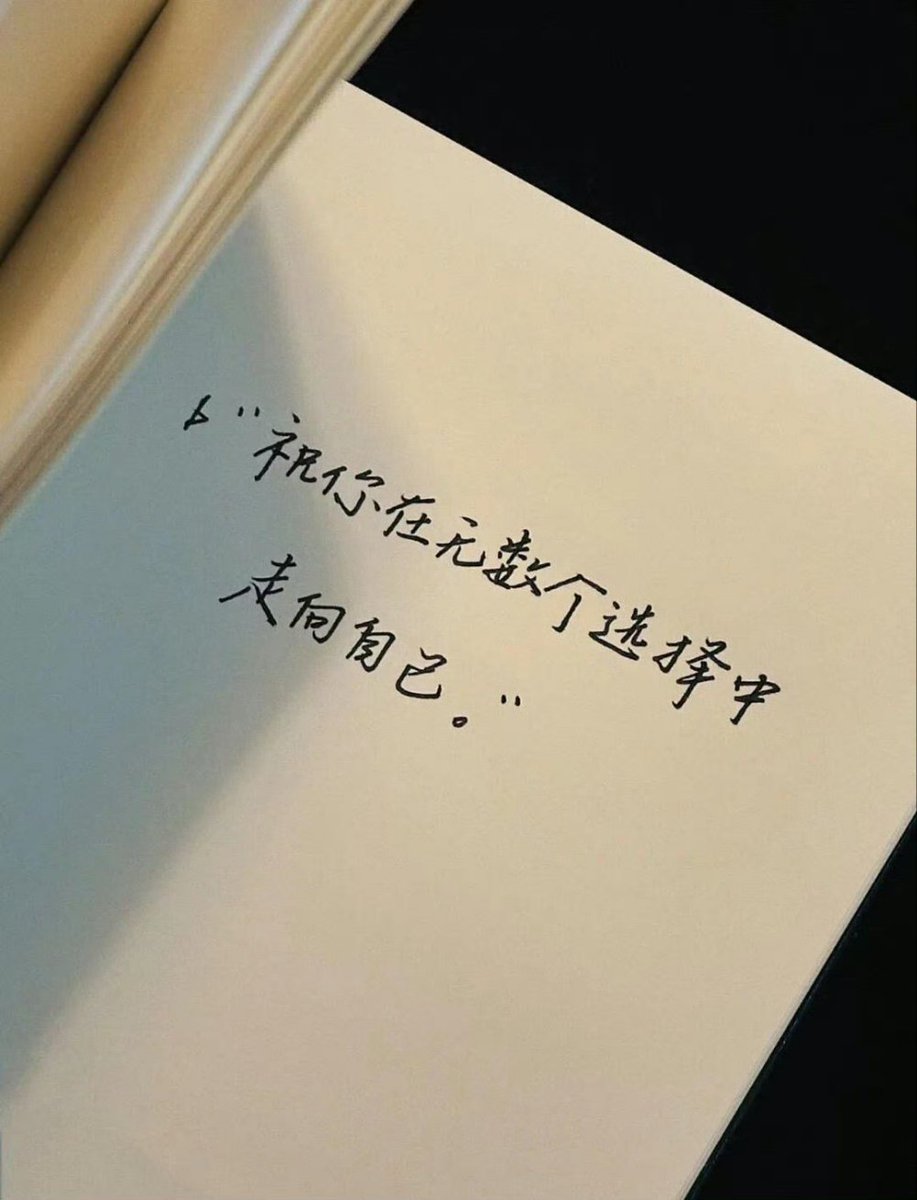 “祝你在无数个选择中
走向自己。”